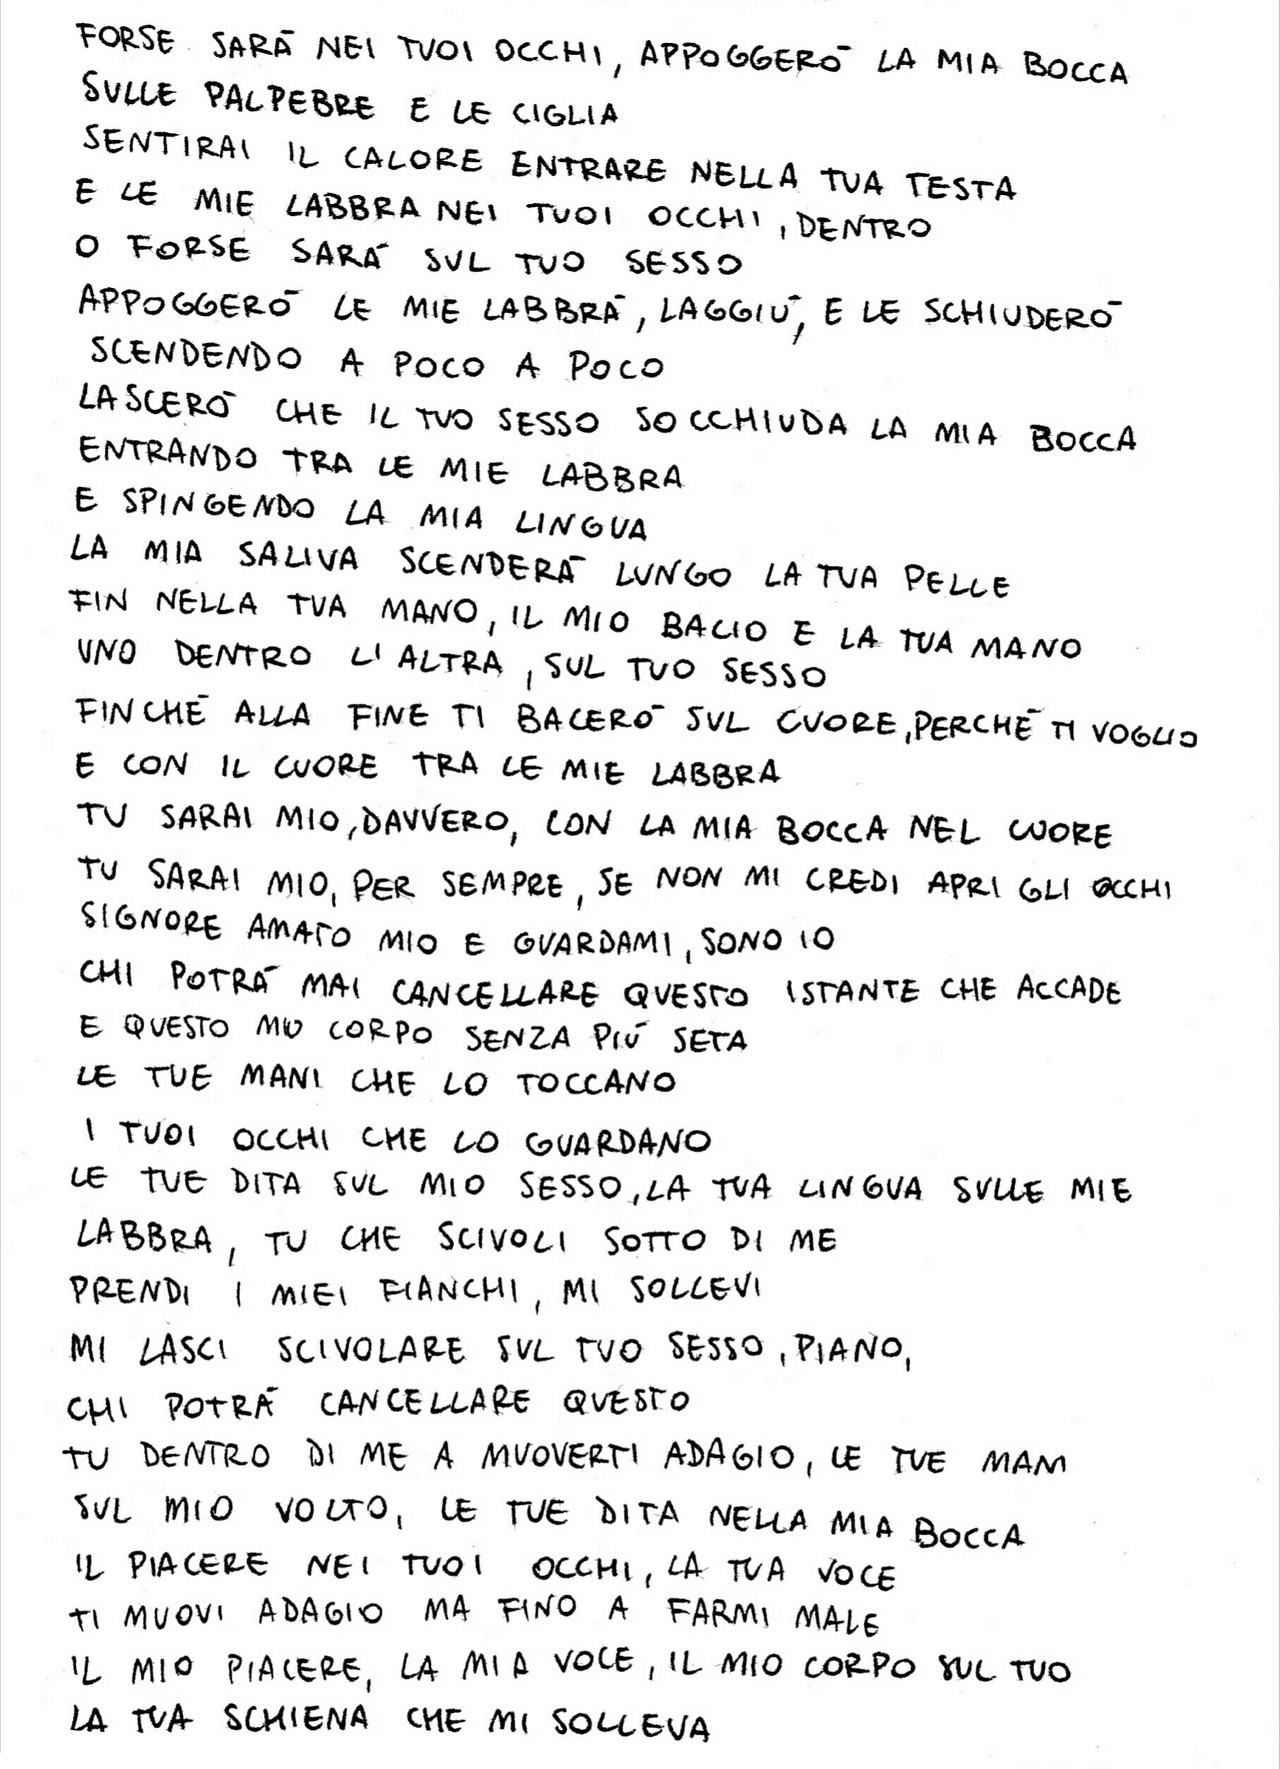 FORSE SARÀ NEI TUOI OCCHI, APPOGGERÒ LA MIA BOCCA
SULLE PALPEBRE E LE CIGLIA
SENTIRAI IL CALORE ENTRARE NELLA TUA TESTA
E LE MIE LABBRA NEI TUOI OCCHI, DENTRO
O FORSE SARÀ SUL TUO SESSO
APPOGGERÒ LE MIE LABBRA, LAGGIÙ, E LE SCHIUDERÒ
SCENDENDO A POCO A POCO
LASCERÒ CHE IL TUO SESSO SOCCHIUDA LA MIA BOCCA
ENTRANDO TRA LE MIE LABBRA
E SPINGENDO LA MIA LINGUA
LA MIA SALIVA SCENDERÀ LUNGO LA TUA PELLE
FIN NELLA TUA MANO, IL MIO BACIO E LA TUA MANO
UNO DENTRO L'ALTRA, SUL TUO SESSO
FINCHÉ ALLA FINE TI BACERÒ SUL CUORE, PERCHÉ TI VOGLIO
E CON IL CUORE TRA LE MIE LABBRA
TU SARAI MIO, DAVVERO, CON LA MIA BOCCA NEL CUORE
TU SARAI MIO, PER SEMPRE, SE NON MI CREDI APRI GLI OCCHI
SIGNORE AMATO MIO E GUARDAMI, SONO IO
CHI POTRÀ MAI CANCELLARE QUESTO ISTANTE CHE ACCADE
E QUESTO MIO CORPO SENZA PIÙ SETA
LE TUE MANI CHE LO TOCCANO
I TUOI OCCHI CHE LO GUARDANO
LE TUE DITA SUL MIO SESSO, LA TUA LINGUA SULLE MIE
LABBRA, TU CHE SCIVOLI SOTTO DI ME
PRENDI I MIEI FIANCHI, MI SOLLEVI
MI LASCI SCIVOLARE SUL TUO SESSO, PIANO,
CHI POTRÀ CANCELLARE QUESTO
TU DENTRO DI ME A MUOVERTI ADAGIO, LE TUE MANI
SUL MIO VOLTO, LE TUE DITA NELLA MIA BOCCA
IL PIACERE NEI TUOI OCCHI, LA TUA VOCE
TI MUOVI ADAGIO MA FINO A FARMI MALE
IL MIO PIACERE, LA MIA VOCE, IL MIO CORPO SUL TUO
LA TUA SCHIENA CHE MI SOLLEVA